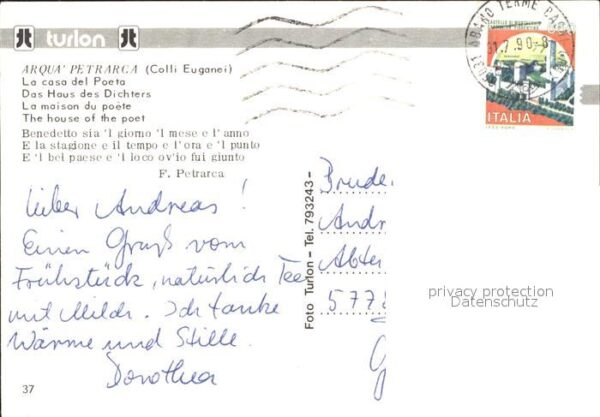 turlon
ARQUA' PETRARCA (Colli Euganei)
La casa del Poeta
Das Haus des Dichters
La maison du poète
The house of the poet
Benedetto sia 'l giorno 'l mese e l' anno
E la stagione e il tempo e l'ora e 'l punto
E 'l bel paese e 'l loco ov'io fui giunto
F. Petrarca
Lieber Andreas!
Einen Gruß vom
Frühstück, natürlich Tee
mit Milch. Ich tanke
Wärme und Stille.
Dorothea
37
Foto Turlon - Tel. 793243-
ABANO TERME
ITALIA
Brude
Andr
Abte
5778
privacy protection
Datenschutz